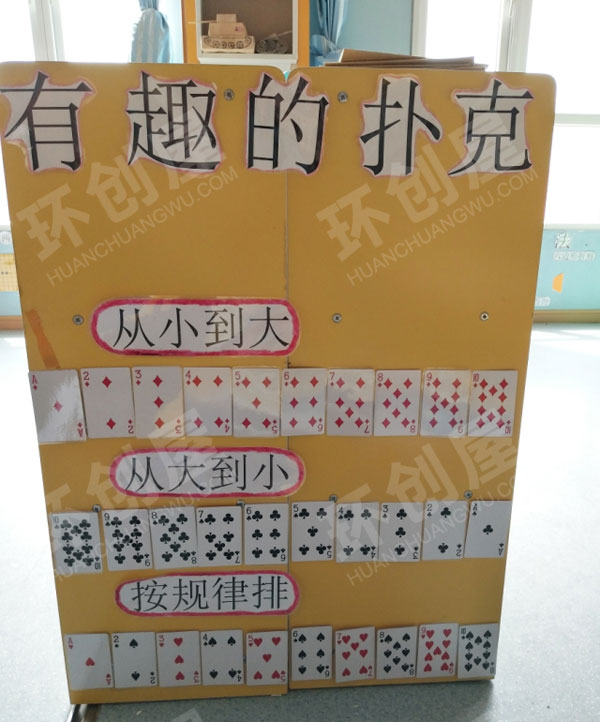 有趣的扑克
环创屋 环创屋
HUANCHUANGWU.COM HUANCHUANGWU.COM
从小到大
A 2 3 4 5 6 7 8 9 10
从大到小
环创屋 环创屋
HUANCHUANGWU.COM HUANCHUANGWU.COM
10 9 8 7 6 5 4 3 2 A
按规律排
A 2 3 4 5 6 7 8 9 10